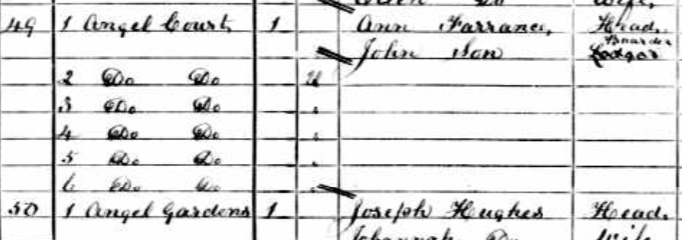 Do Wife,
49 1 Angel Court 1 Ann Farrance, Head,
Boarder
John Son Lodger
2 Do Do U
3 Do Do "
4 Do Do "
5 Do Do "
6 Do Do "
50 1 Angel Gardens 1 Joseph Hughes Head,
Johannah Do Wife